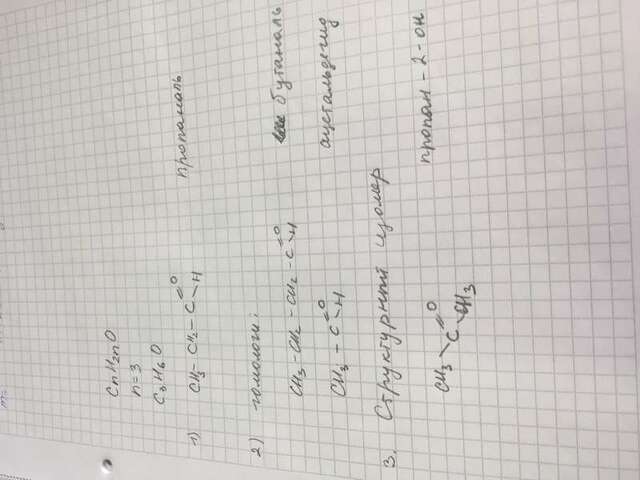 CnH2nO
n=3
C3H6O
1) CH3-CH2-C=O-H пропаналь
2) гомологи:
CH3-CH2-CH2-C=O-H бутаналь
CH3-C=O-H ацетальдегид
3. Структурный изомер
CH3-C=O-CH3 пропан-2-он